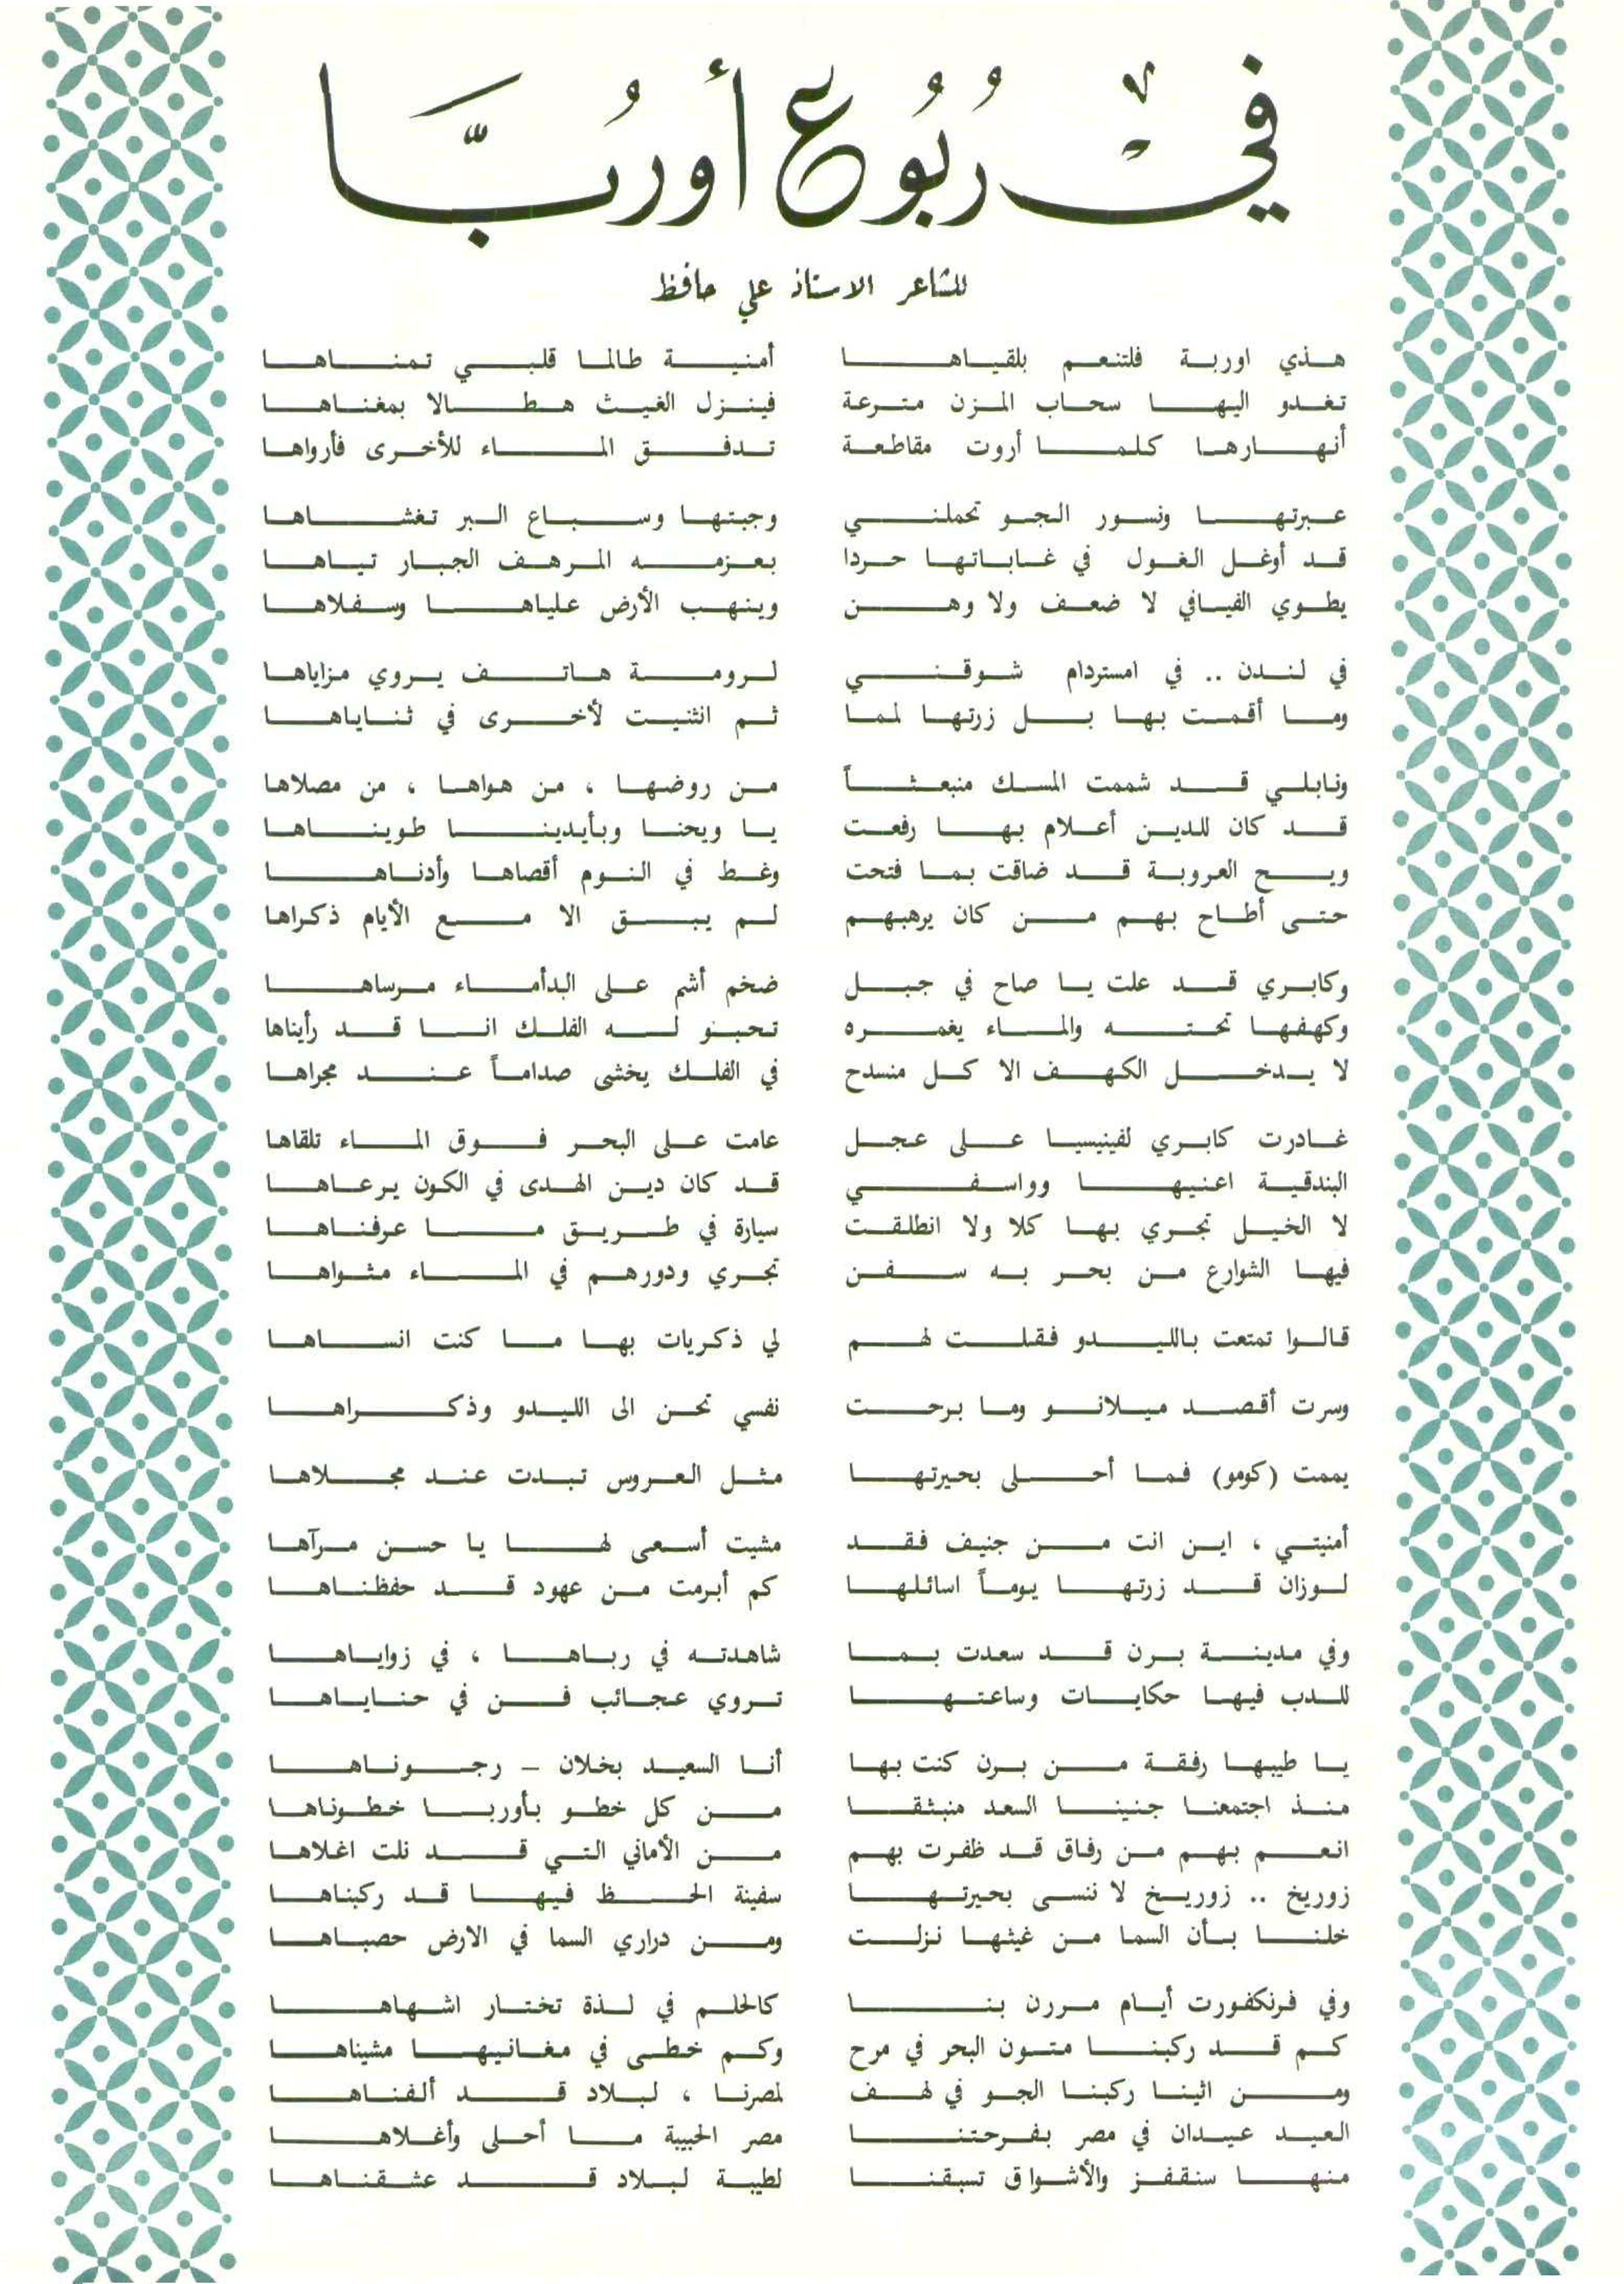 في رُبُوع أورُبَّا
للشاعر الاستاذ علي حافظ
هذي اوربة فلتنعم بلقياها أمنية طالما قلبي تمناها
تغدو اليها سحاب المزن مترعة فينزل الغيث هطالا بمغناها
أنهارها كلما أروت مقاطعة تدفق الماء للأخرى فأرواها
عبرتها ونسور الجو تحملني وجبتها وسباع البر تغشاها
قد أوغل الغول في غاباتها حردا بعزمه المرهف الجبار تياها
يطوي الفيافي لا ضعف ولا وهن وينهب الأرض علياها وسفلاها
في لندن .. في امستردام شوقني لرومة هاتف يروي مزاياها
وما أقمت بها بل زرتها لمما ثم انثنيت لأخرى في ثناياها
ونابلي قد شممت المسك منبعثاً من روضها ، من هواها ، من مصلاها
قد كان للدين أعلام بها رفعت يا ويحنا وبأيدينا طويناها
ويح العروبة قد ضاقت بما فتحت وغط في النوم أقصاها وأدناها
حتى أطاح بهم من كان يرهبهم لم يبق الا مع الأيام ذكراها
وكابري قد علت يا صاح في جبل ضخم أشم على البدأماء مرساها
وكهفها تحته والماء يغمره تحبو له الفلك انا قد رأيناها
لا يدخل الكهف الا كل منسدح في الفلك يخشى صداماً عند مجراها
غادرت كابري لفينيسيا على عجل عامت على البحر فوق الماء تلقاها
البندقية اعنيها وواسفي قد كان دين الهدى في الكون يرعاها
لا الخيل تجري بها كلا ولا انطلقت سيارة في طريق ما عرفناها
فيها الشوارع من بحر به سفن تجري ودورهم في الماء مثواها
قالوا تمتعت بالليدو فقلت لهم لي ذكريات بها ما كنت انساها
وسرت أقصد ميلانو وما برحت نفسي تحن الى الليدو وذكراها
يممت (كومو) فما أحلى بحيرتها مثل العروس تبدت عند مجلاها
أمنيتي ، اين انت من جنيف فقد مشيت أسعى لها يا حسن مرآها
لوزان قد زرتها يوماً اسائلها كم أبرمت من عهود قد حفظناها
وفي مدينة برن قد سعدت بما شاهدته في رباها ، في زواياها
للدب فيها حكايات وساعتها تروي عجائب فن في حناياها
يا طيبها رفقة من برن كنت بها أنا السعيد بخلان – رجوناها
منذ اجتمعنا جنينا السعد منبثقا من كل خطو بأوربا خطوناها
انعم بهم من رفاق قد ظفرت بهم من الأماني التي قد نلت اغلاها
زوريخ .. زوريخ لا ننسى بحيرتها سفينة الحظ فيها قد ركبناها
خلنا بأن السما من غيثها نزلت ومن دراري السما في الارض حصباها
وفي فرنكفورت أيام مررن بنا كالحلم في لذة تختار اشهاها
كم قد ركبنا متون البحر في مرح وكم خطى في مغانيها مشيناها
ومن اثينا ركبنا الجو في لهف لمصرنا ، لبلاد قد ألفناها
العيد عيدان في مصر بفرحتنا مصر الحبيبة ما أحلى وأغلاها
منها سنقفز والأشواق تسبقنا لطيبة لبلاد قد عشقناها